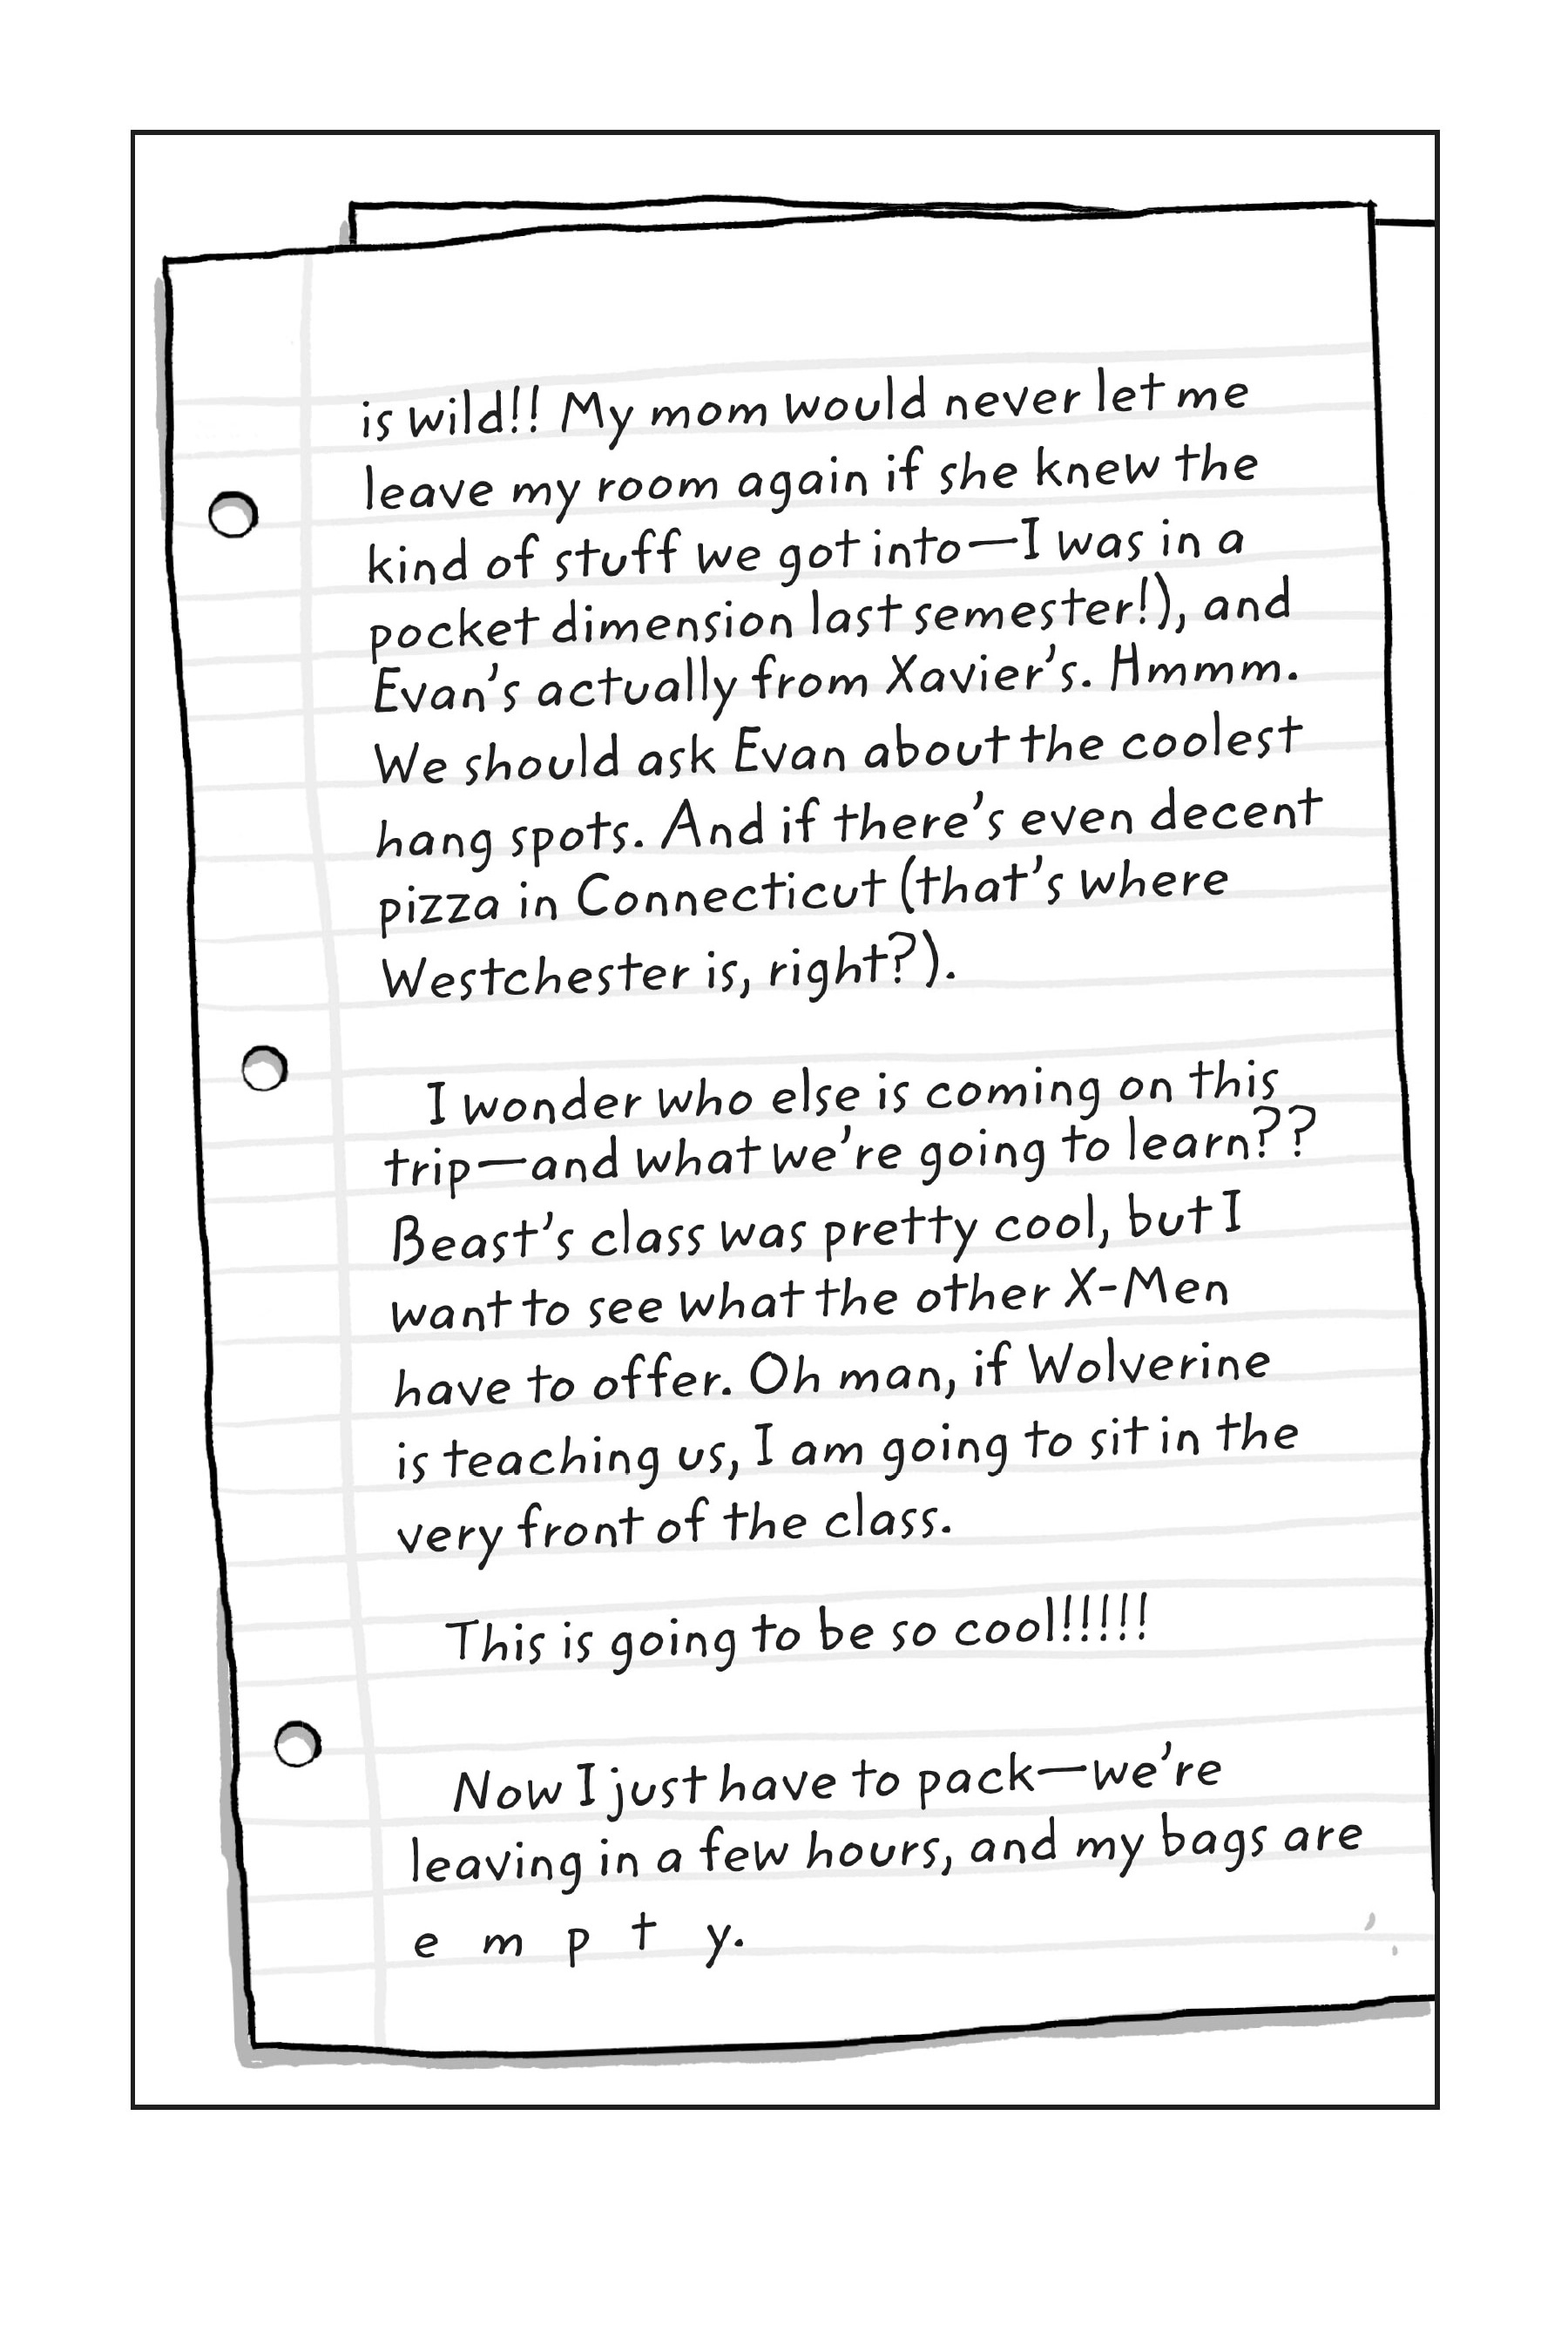 is wild!! My mom would never let me
leave my room again if she knew the
kind of stuff we got into—I was in a
pocket dimension last semester!), and
Evan's actually from Xavier's. Hmmm.
We should ask Evan about the coolest
hang spots. And if there's even decent
pizza in Connecticut (that's where
Westchester is, right?).
I wonder who else is coming on this
trip—and what we're going to learn??
Beast's class was pretty cool, but I
want to see what the other X-Men
have to offer. Oh man, if Wolverine
is teaching us, I am going to sit in the
very front of the class.
This is going to be so cool!!!!!
Now I just have to pack—we're
leaving in a few hours, and my bags are
e m p t y.